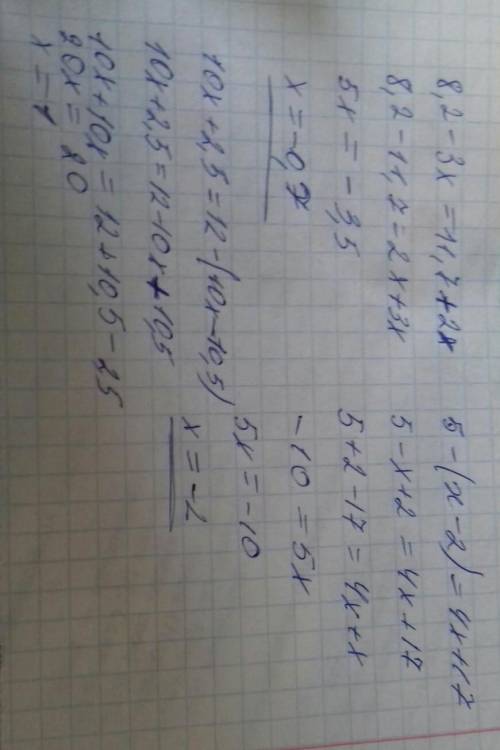 8,2 - 3x = 11,7 + 2x
8,2 - 11,7 = 2x + 3x
5x = -3,5
x = -0,7
10x + 2,5 = 12 - (10x - 10,5)
10x + 2,5 = 12 - 10x + 10,5
10x + 10x = 12 + 10,5 - 2,5
20x = 20
x = 1
5 - (x - 2) = 4x + 17
5 - x + 2 = 4x + 17
5 + 2 - 17 = 4x + x
-10 = 5x
5x = -10
x = -2